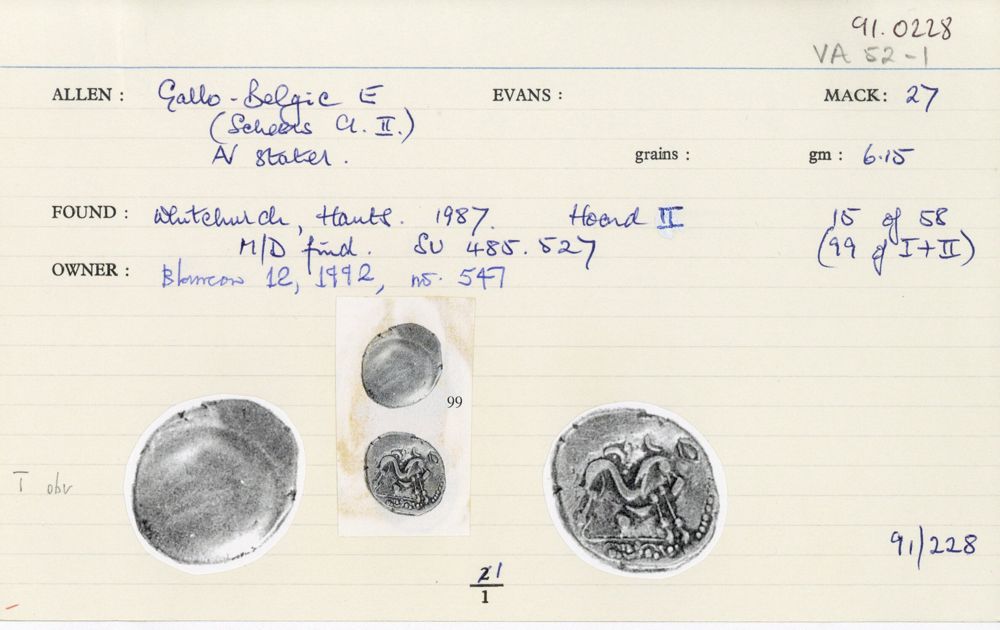 91.0228
VA 52-1
ALLEN : Gallo-Belgic E EVANS : MACK: 27
(Scheers Cl. II.)
AV stater. grains : gm : 6.15
FOUND : Whitchurch, Hants. 1987. Hoard II 15 of 58
M/D find. SU 485.527 (99 of I+II)
OWNER : 12, 1992, no. 547
99
T obv
91/228
21
1